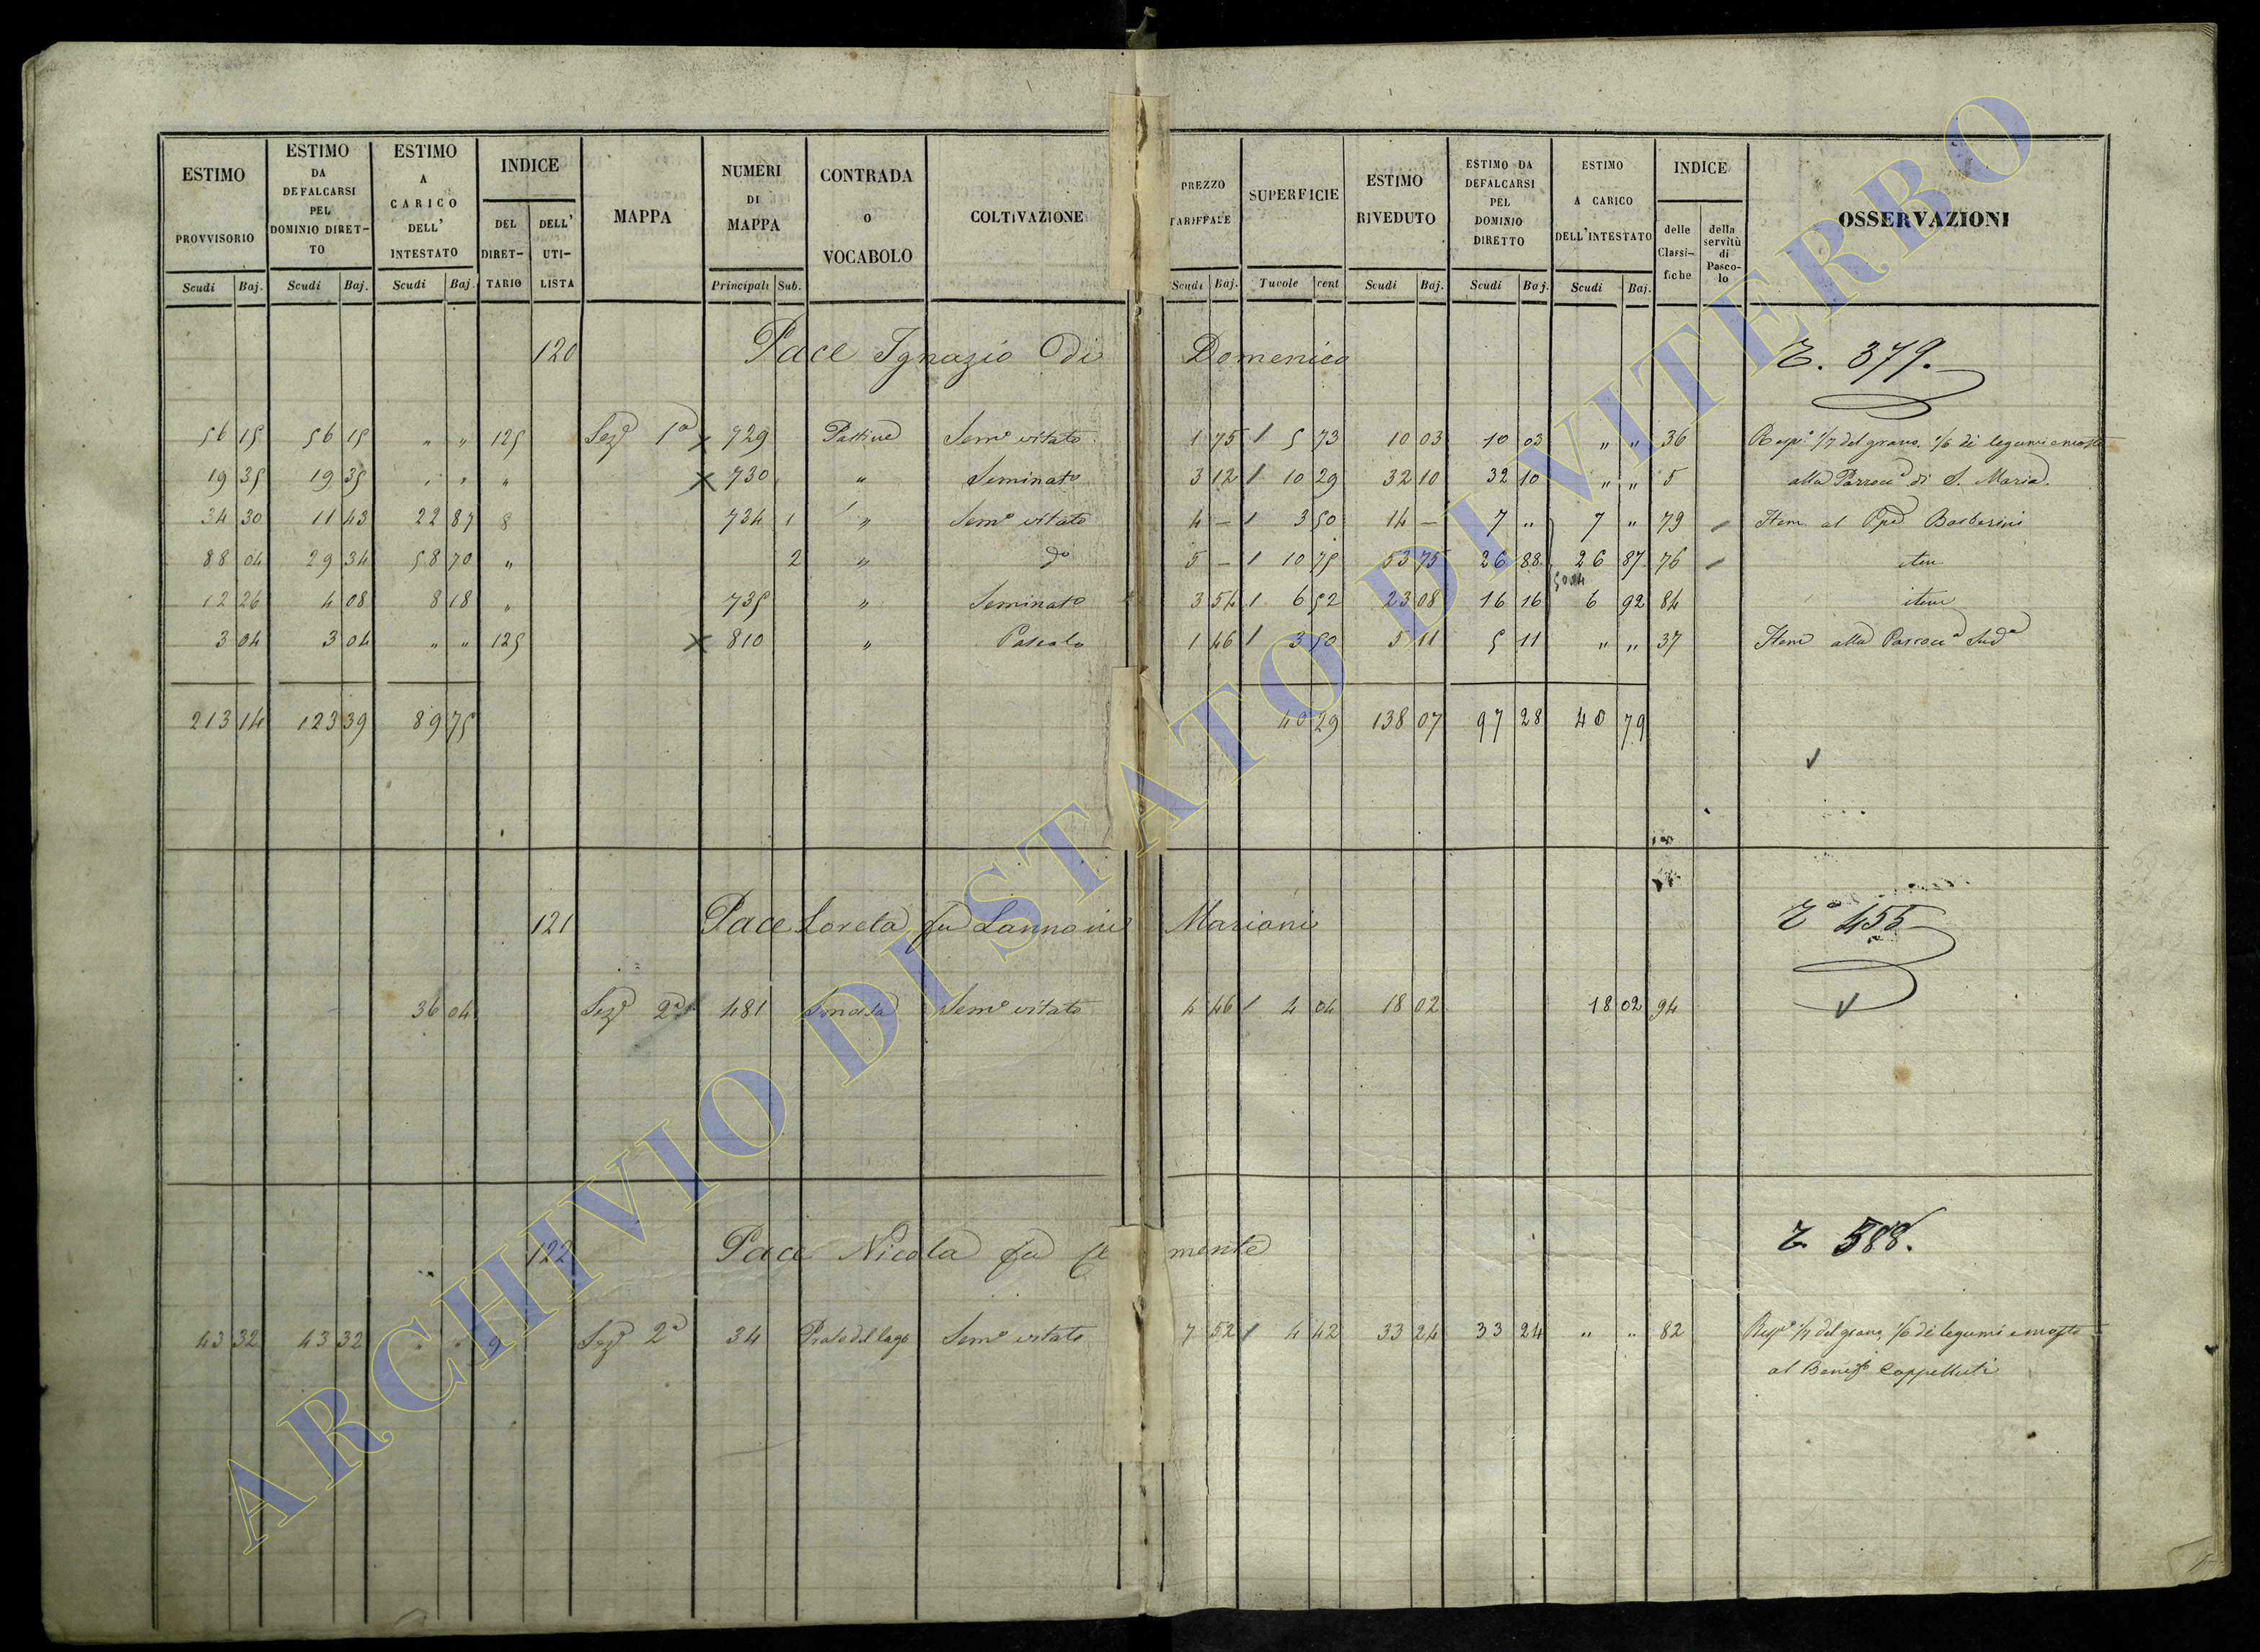 ESTIMO PROVVISORIO Scudi Baj.
ESTIMO DA DEFALCARSI PEL DOMINIO DIRETTO Scudi Baj.
ESTIMO A CARICO DELL' INTESTATO Scudi Baj.
INDICE DEL DIRETTARIO DELL' UTILISTA
MAPPA
NUMERI DI MAPPA Principali Sub.
CONTRADA o VOCABOLO
COLTIVAZIONE
PREZZO TARIFFALE Scudi Baj.
SUPERFICIE Tavole cent
ESTIMO RIVEDUTO Scudi Baj.
ESTIMO DA DEFALCARSI PEL DOMINIO DIRETTO Scudi Baj.
ESTIMO A CARICO DELL'INTESTATO Scudi Baj.
INDICE delle Classifiche della servitù di Pascolo
OSSERVAZIONI
120 Pace Ignazio Di Domenico 379.
56 15 56 15 " " 125 Sez.e 1a 729 Semo vitato 1 75 5 73 10 03 10 03 " " 36 1/7 del grano, 1/6 di legumi e mosto
19 35 19 35 " " " 730 " Seminato 3 12 10 29 32 10 32 10 " " 5 alla di S. Maria.
34 30 11 43 22 87 8 734 1 " Semo vitato 4 – 3 50 14 – 7 " 7 " 79 Item al Barberini
88 04 29 34 58 70 " 2 " do 5 – 10 75 53 75 26 88 26 87 76 item
12 26 4 08 8 18 " 735 " Seminato 3 54 6 52 23 08 16 16 6 92 84 item
3 04 3 04 " " 125 810 " Pascolo 1 46 3 50 5 11 5 11 " " 37 Item alla
213 14 123 39 89 75 40 29 138 07 97 28 40 79
121 Pace Loreta fu Mariani 455
36 04 Sez.e 2a 481 Semo vitato 4 46 4 04 18 02 18 02 94
122 Pace Nicola fu Clemente 388.
43 32 43 32 " " 9 Sez.e 2a 34 Prato del lago Semo vitato 7 52 4 42 33 24 33 24 " " 82 1/7 del grano, 1/6 di legumi e mosto
al Benefo Cappelluti
ARCHIVIO DI STATO DI VITERBO